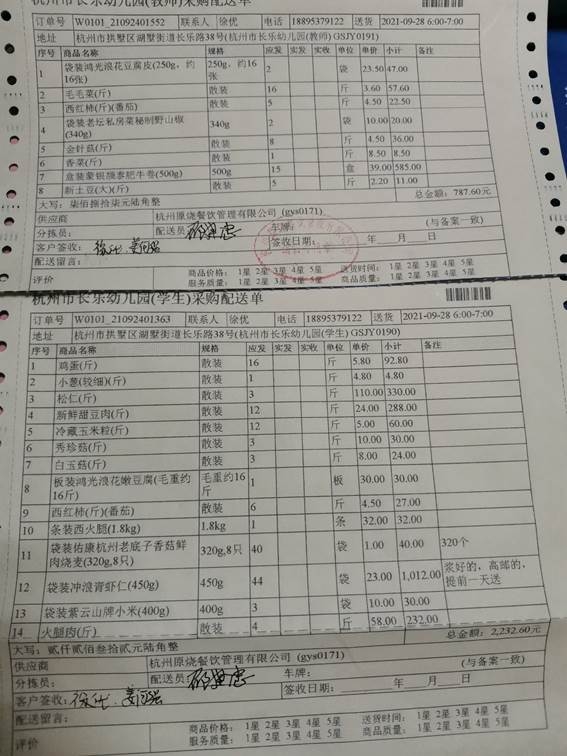 杭州市长乐幼儿园(教师)采购配送单
订单号 W0101_21092401552 联系人 徐优 电话 18895379122 送货 2021-09-28 6:00-7:00
地址 杭州市拱墅区湖墅街道长乐路38号(杭州市长乐幼儿园(教师) GSJY0191)
序号 商品名称 规格 应发 实发 实收 单位 单价 小计 备注
1 袋装鸿光浪花豆腐皮(250g，约16张) 250g，约16张 2 袋 23.50 47.00
2 毛毛菜(斤) 散装 16 斤 3.60 57.60
3 西红柿(斤)(番茄) 散装 5 斤 4.50 22.50
4 袋装老坛私房菜秘制野山椒(340g) 340g 2 袋 10.00 20.00
5 金针菇(斤) 散装 8 斤 4.50 36.00
6 香菜(斤) 散装 1 斤 8.50 8.50
7 盒装蒙银颉泰肥牛卷(500g) 500g 15 盒 39.00 585.00
8 新土豆(大)(斤) 散装 5 斤 2.20 11.00
大写：柒佰捌拾柒元陆角整 总金额：787.60元
供应商 杭州原烧餐饮管理有限公司 (gys0171)
分拣员： 配送员： 车牌： (与备案一致)
客户签收： 签收日期： 年 月 日
配送留言：
评价 商品价格： 1星 2星 3星 4星 5星 送货时间： 1星 2星 3星 4星 5星
服务质量： 1星 2星 3星 4星 5星 商品质量： 1星 2星 3星 4星 5星
杭州市长乐幼儿园(学生)采购配送单
订单号 W0101_21092401363 联系人 徐优 电话 18895379122 送货 2021-09-28 6:00-7:00
地址 杭州市拱墅区湖墅街道长乐路38号(杭州市长乐幼儿园(学生) GSJY0190)
序号 商品名称 规格 应发 实发 实收 单位 单价 小计 备注
1 鸡蛋(斤) 散装 16 斤 5.80 92.80
2 小葱(较细)(斤) 散装 1 斤 4.80 4.80
3 松仁(斤) 散装 3 斤 110.00 330.00
4 新鲜甜豆肉(斤) 散装 12 斤 24.00 288.00
5 冷藏玉米粒(斤) 散装 12 斤 5.00 60.00
6 秀珍菇(斤) 散装 3 斤 10.00 30.00
7 白玉菇(斤) 散装 3 斤 8.00 24.00
8 板装鸿光浪花嫩豆腐(毛重约16斤) 毛重约16斤 1 板 30.00 30.00
9 西红柿(斤)(番茄) 散装 6 斤 4.50 27.00
10 条装西火腿(1.8kg) 1.8kg 1 条 32.00 32.00
11 袋装佑康杭州老底子香菇鲜肉烧麦(320g,8只) 320g,8只 40 袋 1.00 40.00 320个
12 袋装冲浪青虾仁(450g) 450g 44 袋 23.00 1,012.00 浆好的，高邮的，提前一天送
13 袋装紫云山牌小米(400g) 400g 3 袋 10.00 30.00
14 火腿肉(斤) 散装 4 斤 58.00 232.00
大写：贰仟贰佰叁拾贰元陆角整 总金额：2,232.60元
供应商 杭州原烧餐饮管理有限公司 (gys0171)
分拣员： 配送员： 车牌： (与备案一致)
客户签收： 签收日期： 年 月 日
配送留言：
评价 商品价格： 1星 2星 3星 4星 5星 送货时间： 1星 2星 3星 4星 5星
服务质量： 1星 2星 3星 4星 5星 商品质量： 1星 2星 3星 4星 5星